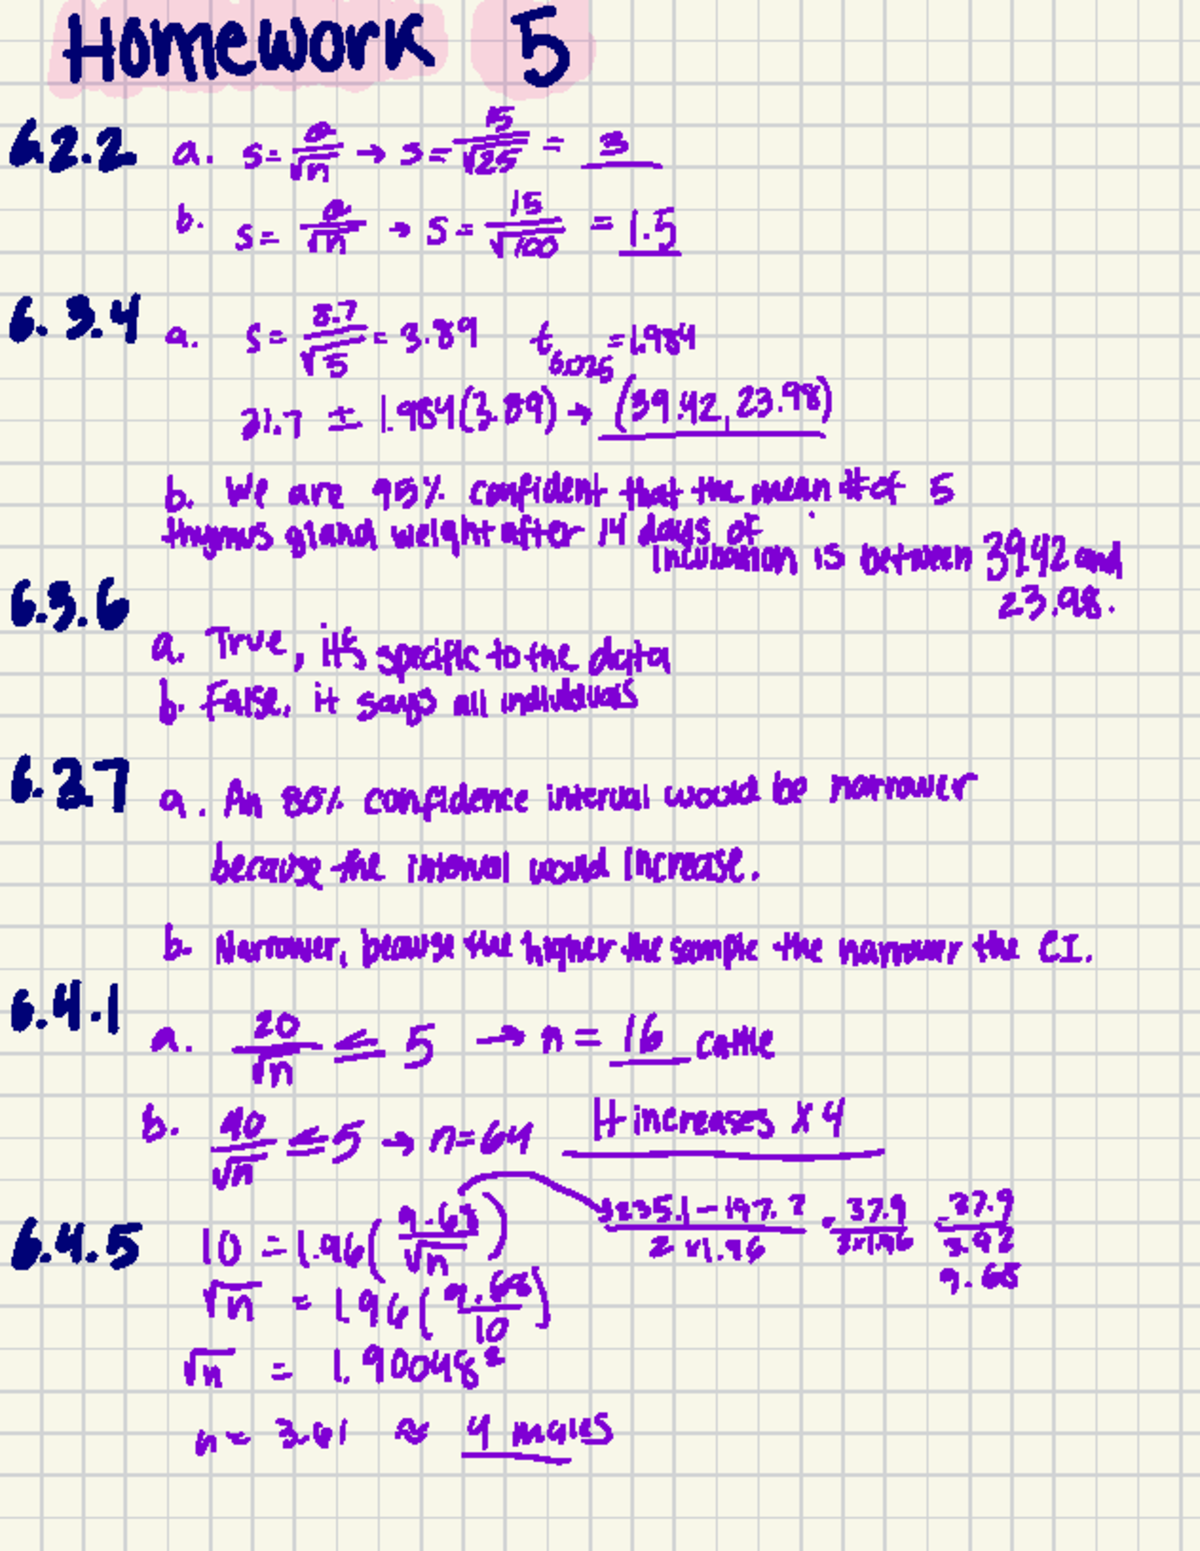 Homework 5
6.2.2 a. s = σ/√n → s = 15/√25 = 3
b. s = σ/√n → s = 15/√100 = 1.5
6.3.4 a. s = 8.7/√5 = 3.89 t0.025 = 1.984
31.7 ± 1.984(3.89) → (39.42, 23.98)
b. We are 95% confident that the mean # of 5
thymus gland weight after 14 days of
incubation is between 39.42 and
23.98.
6.3.6
a. True, it's specific to the data
b. False, it says all individuals
6.3.7 a. An 80% confidence interval would be narrower
because the interval would increase.
b. Narrower, because the higher the sample the narrower the CI.
6.4.1
a. 20/√n ≤ 5 → n = 16 cattle
b. 40/√n ≤ 5 → n = 64 It increases x 4
6.4.5 10 = 1.96(9.68/√n) 235.1 - 197.2/2 x 1.96 = 37.9/2x1.96 = 37.9/3.92
9.68
√n = 1.96(9.68/10)
√n = 1.90048²
n = 3.61 ≈ 4 males